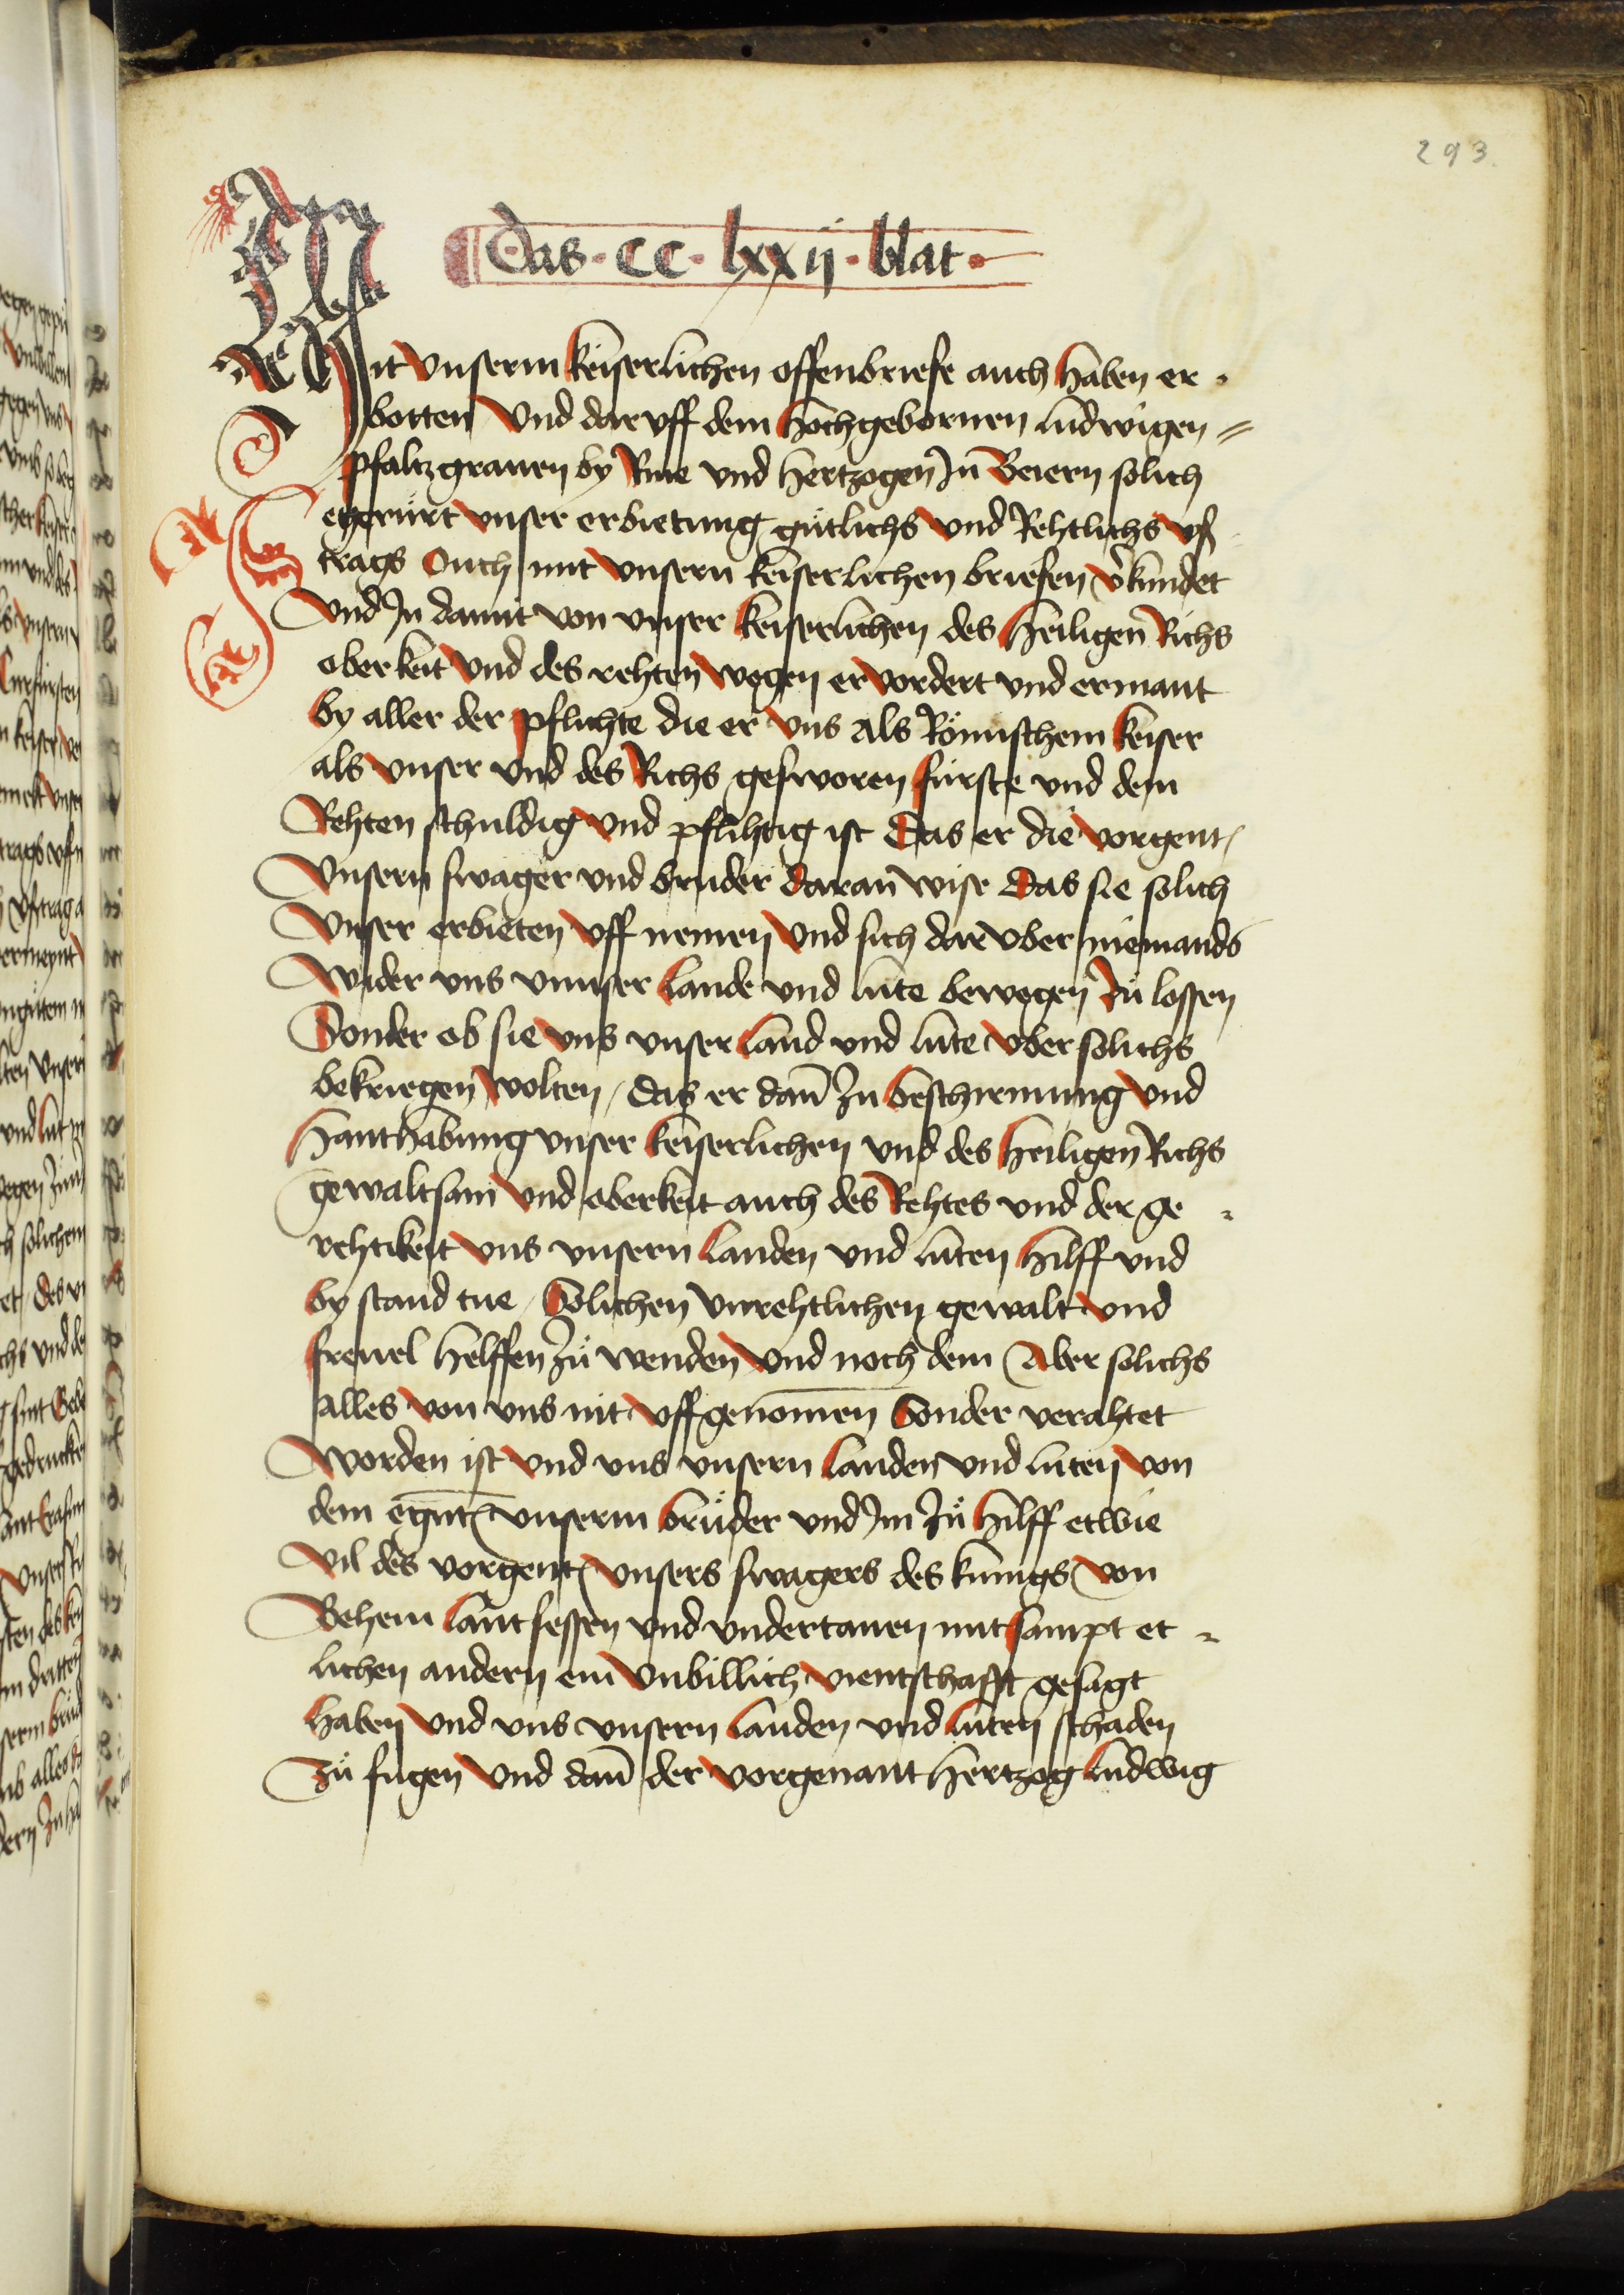 293.
Das · CC · lxxij · blat ·
Mit vnserm keiserlichen offenbriefe auch haben er
botten vnd daruff dem hochgebornen ludwigen
pfaltzgrauen by Rine vnd hertzogen Jn Beiern solich
egerürt vnser erbietung gütlichs vnd Rehtlichs vs
trags Ouch mit vnsern keiserlichen briefen v̾kündet
vnd Jn damit von vnser keiserlichen des heiligen Richs
oberkeit vnd des rehten wegen ervordert vnd ermant
by aller der pflichte die er vns als Römischem keiser
als vnser vnd des Richs gesworen fürste vnd dem
Rehten schuldig vnd pflihtig ist Das er die vorgent
vnsern swager vnd bruder daran wise Das sie solich
vnser erbieten vff nemen vnd sich darvber niemands
wider vns vnnser lande vnd lüte bewegen zü lossen
Sonder ob sie vns vnser land vnd lüte vber solichs
bekriegen wolten / das er dan̄ zu beschirmung vnd
hanthabung vnser keiserlichen vnd des heiligen Richs
gewaltsam vnd oberkeit auch des Rehtes vnd der ge
rehtikeit vns vnsern landen vnd lüten hilff vnd
bystand tue / Solichen vnrehtlichen gewalt vnd
freuel helffen zü wenden vnd noch dem Aber solichs
alles von vns nit vffgenom̄en Sonder verahtet
worden ist vnd vns vnsern landen vnd lüten von
dem egn̄t vnserm brüder vnd Jm zü hilff etwie
vil des vorgent vnsers swagers des künigs von
Behem lantsessen vnd vndertanen mit sampt et
lichen andern ein vnbillich vientschafft gesagt
haben vnd vns vnsern landen vnd lüten schaden
zü fügen vnd dan̄ der vorgenant hertzog ludwig